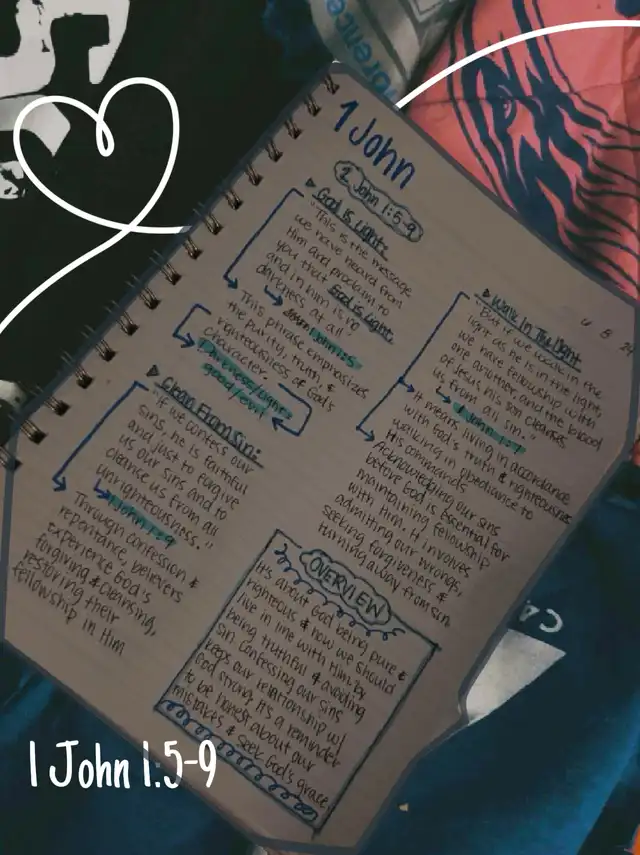 1 John
2 John 1:5-9
God is Light:
"This is the message
we have heard from
Him and proclaim to
you that God is Light,
and in him is no
darkness at all"
1 John 1:5
This phrase emphasizes
the purity, truth &
righteousness of God's
character.
Darkness/Light
good/evil
Clean From Sin:
"if we confess our
sins, he is faithful
and just to forgive
us our sins and to
cleanse us from all
unrighteousness."
1 John 1:9
Through confession &
repentance, believers
experience God's
forgiving & cleansing,
restoring their
fellowship in Him
Walk In The Light
"But if we walk in the
light, as he is in the light,
we have fellowship with
one another, and the blood
of Jesus his son cleanses
us from all sin."
1 John 1:7
It means living in accordance
with God's truth & righteousness
walking in obediance to
His commands
Acknowledging our sins
before God is essential for
maintaining fellowship
with Him. It involves
admitting our wrongs,
seeking forgiveness &
turning away from sin
OVERVIEW
It's about God being pure &
righteous & how we should
live in line with Him by
being truthful & avoiding
sin. Confessing our sins
keeps our relationship w/
God strong. It's a reminder
to be honest about our
mistakes & seek God's grace
orence
1 John 1:5-9